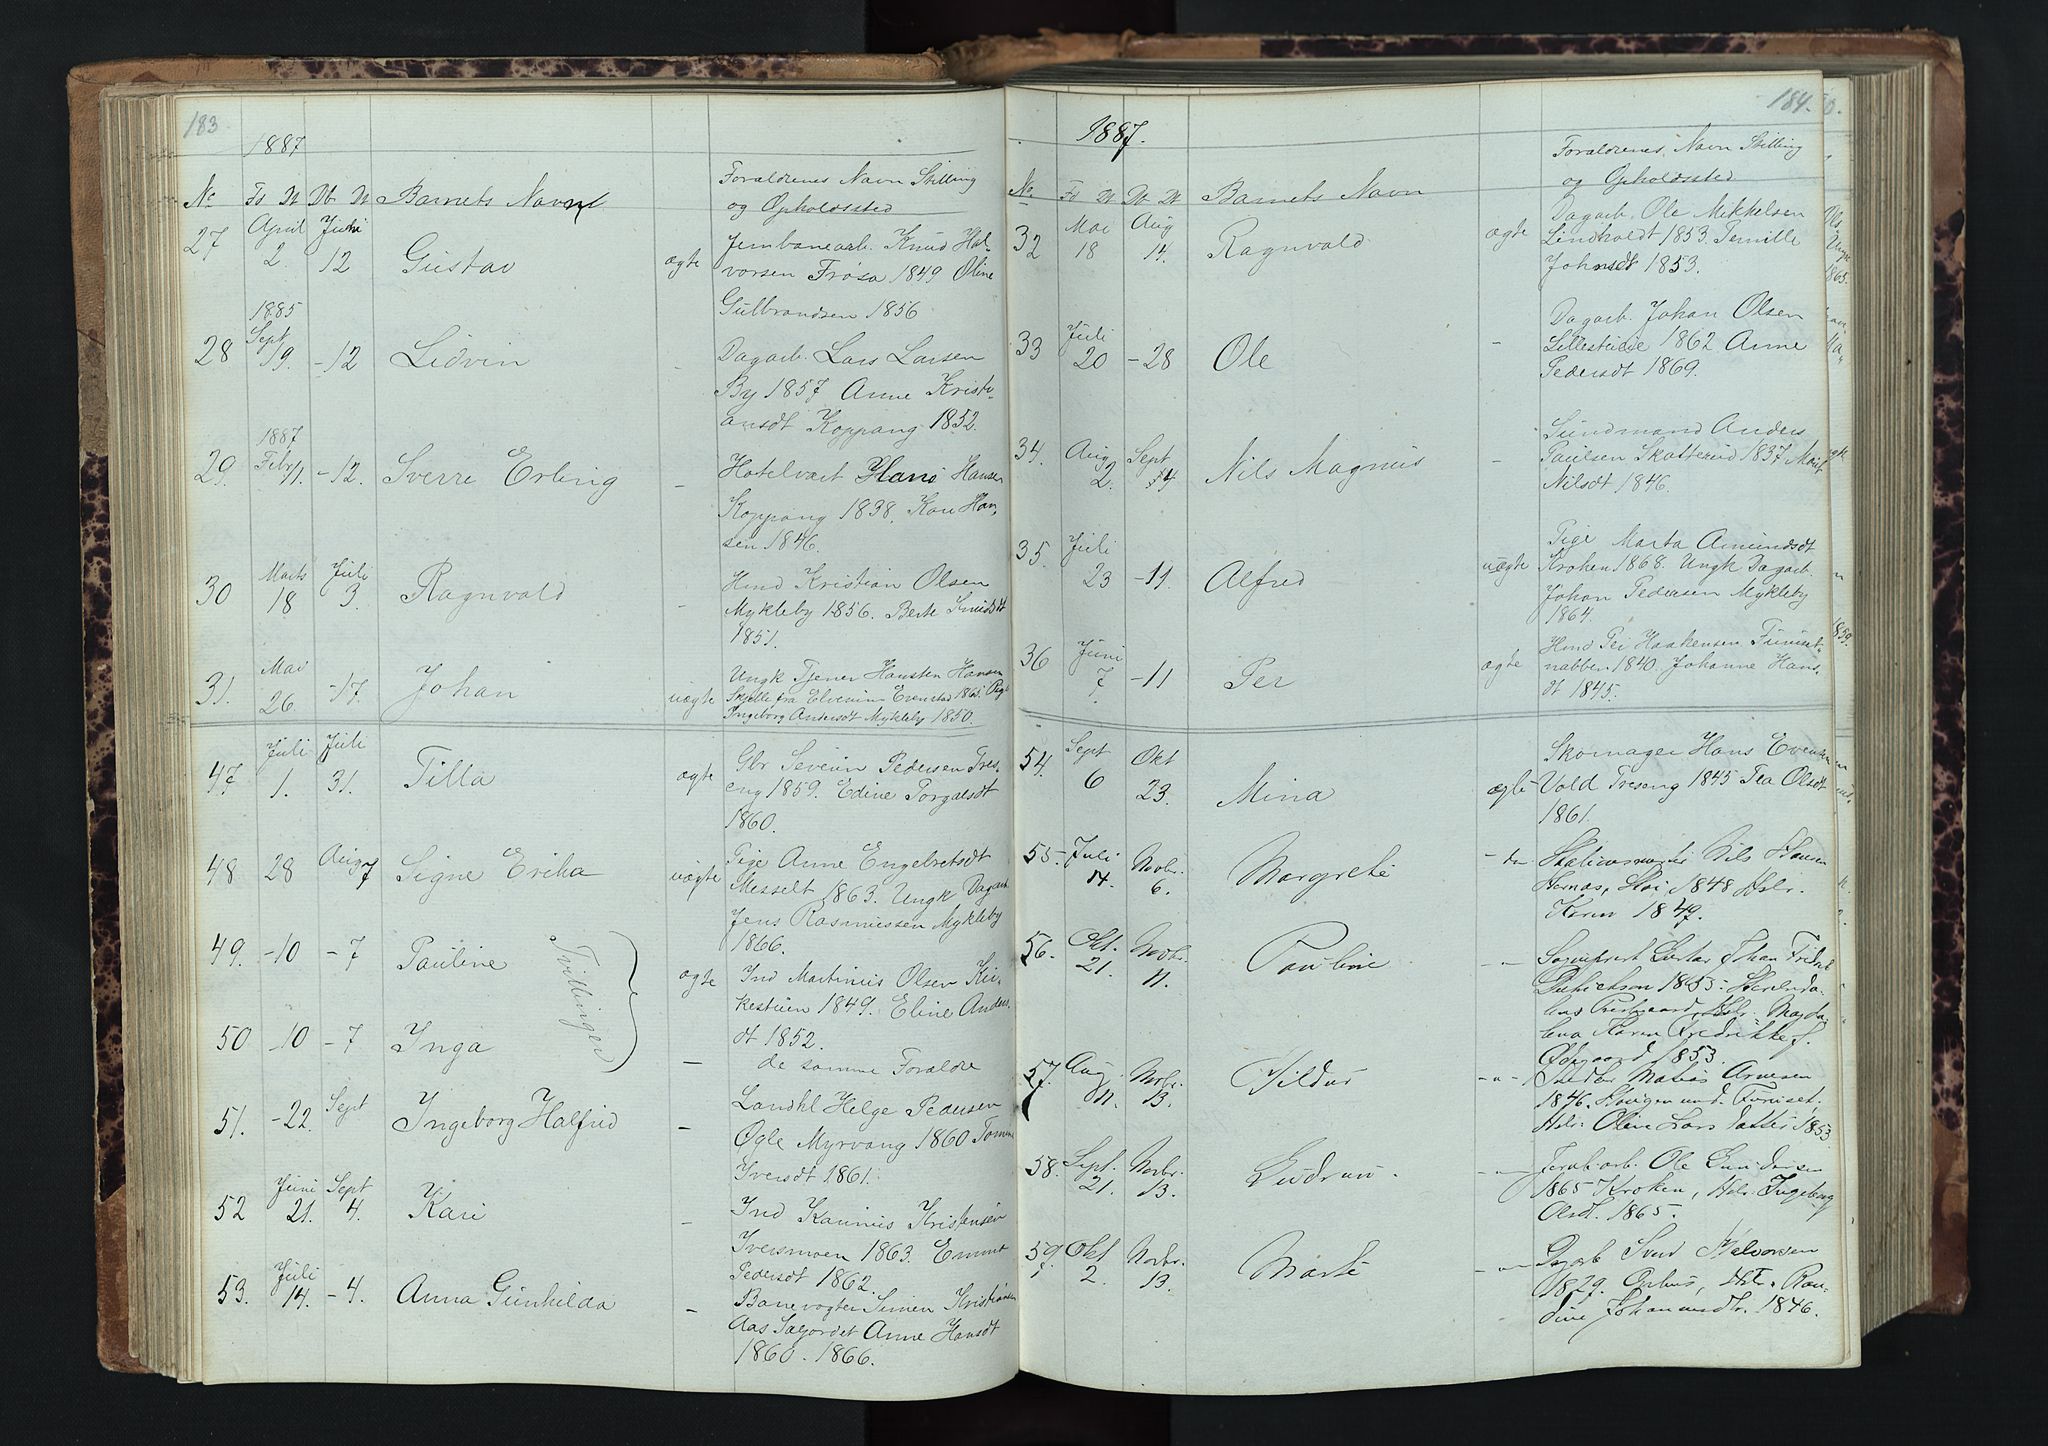 183
1887
No Fs D Db D Barnets Navn Foraldrenes Navn Stilling
og Opholdssted
27 April 2. Juni 12 Gustav ægte Jernbanearb. Knud Hal-
vorsen Frøsa 1849 Oline
Gulbrandsen 1856
28 1885 Sept 19. -12 Lidvin - Dagarb. Lars Larsen
By 1857 Anne Kristi-
ansdt Koppang 1852.
29. 1887 Febr 11. -12. Sverre Erling - Hotelvært Hans Hansen
Koppang 1838, Kari Han-
sen 1846.
30 Marts 18 Juli 3. Ragnvald - Hmd Kristian Olsen
Mykleby 1856. Berte Knudsdt
1851.
31. Mai 26. -17. Johan uægte Ungk Tjener Hansten Hansen
Skjelle fra Elverum Evenstad 1865 Pige
Ingeborg Andersdt Mykleby 1850.
47. Juli 1. Juli 31. Tilla ægte Gbr Severin Pedersen Tres-
eng 1859. Edine Torgalsdt
1860.
48 28 Aug 7 Signe Erika uægte Pige Anne Engebretsdt
Messelt 1863. Ungk Dagarb
Jens Rasmussen Mykleby
1866.
49. -10 -7 Pauline Tvillinger ægte Ind Martinus Olsen Kir-
kestuen 1849. Eline Anders-
dt 1852.
50 -10 -7 Inga - de samme Foraldre
51. -22. Sept Ingeborg Halfrid - Landhl Helge Pedersen
Øgle Myrvang 1860 Tomine
Iversdt 1861.
52 Juni 21. Sept 4. Kari - Ind Kasinus Kristensen
Iversmoen 1863. Emme
Pedersdt 1862.
53. Juli 14. -4. Anna Gunhilda - Banevogter Simen Kristiansen
Aas Søjordet Anne Hansdt
1860. 1866.
184.
1887.
No Fs D Db D Barnets Navn Foraldrenes Navn Stilling
og Opholdssted
32 Mai 18 Aug 14. Ragnvald ægte Dagarb. Ole Mikkelsen
Lindholdt 1853. Pernille
Johnsdt 1853.
33 Juli 20 -28 Ole - Dagarb. Johan Olsen
Lillestueie 1862 Anne
Pedersdt 1869.
34. Aug 2. Sept 14 Nils Magnus - Sundmand Anders
Paulsen Skatterud 1837 Marit
Nilsdt 1846.
35. Juli 23 -11 Alfred uægte Pige Marta Amundsdt
Kroken 1868. Ungk Dagarb.
Johan Pedersen Mykleby
1864.
36 Juni 7 -11 Per ægte Hmd Per Haakensen Furuset-
nabben 1840. Johanne Hans-
dt 1845.
54. Sept 6 Okt 23. Mina ægte Skomager Hans Evensen
Vold Treseng 1845 Tea Olsdt
1861.
55 Juli 14. Novbr. 6. Margrete - do Stationsmester Nils Hansen
Hernæs, Stai, 1848 Hstr.
Karen 1849.
56. Okt. 21. Novbr. 11. Pauline - " Sogneprest Gustav Johan Fredrik
Dietrichson 1853. Storelvda-
lens Prestgaard, Hstr. Magda-
lena Karen Fredrikke f.
Ødegaard 1853.
57. Aug. 11. Novbr. 13. Hildur - " - Mabias Arnesen
1846. Furuset,
Hstr. Oline Larsdatter 1853
58. Sept. 21. Novbr. 13. Gudrun. - " Jernb.arb. Ole Gundersen
1865 Kroken, Hstr. Ingeborg
Olsdt. 1865.
59. Okt 2. Novbr. 13. Marte - " Dgarb Svend Halvorsen
1829. Hstr. Ran-
dine Johannesdtr. 1846.